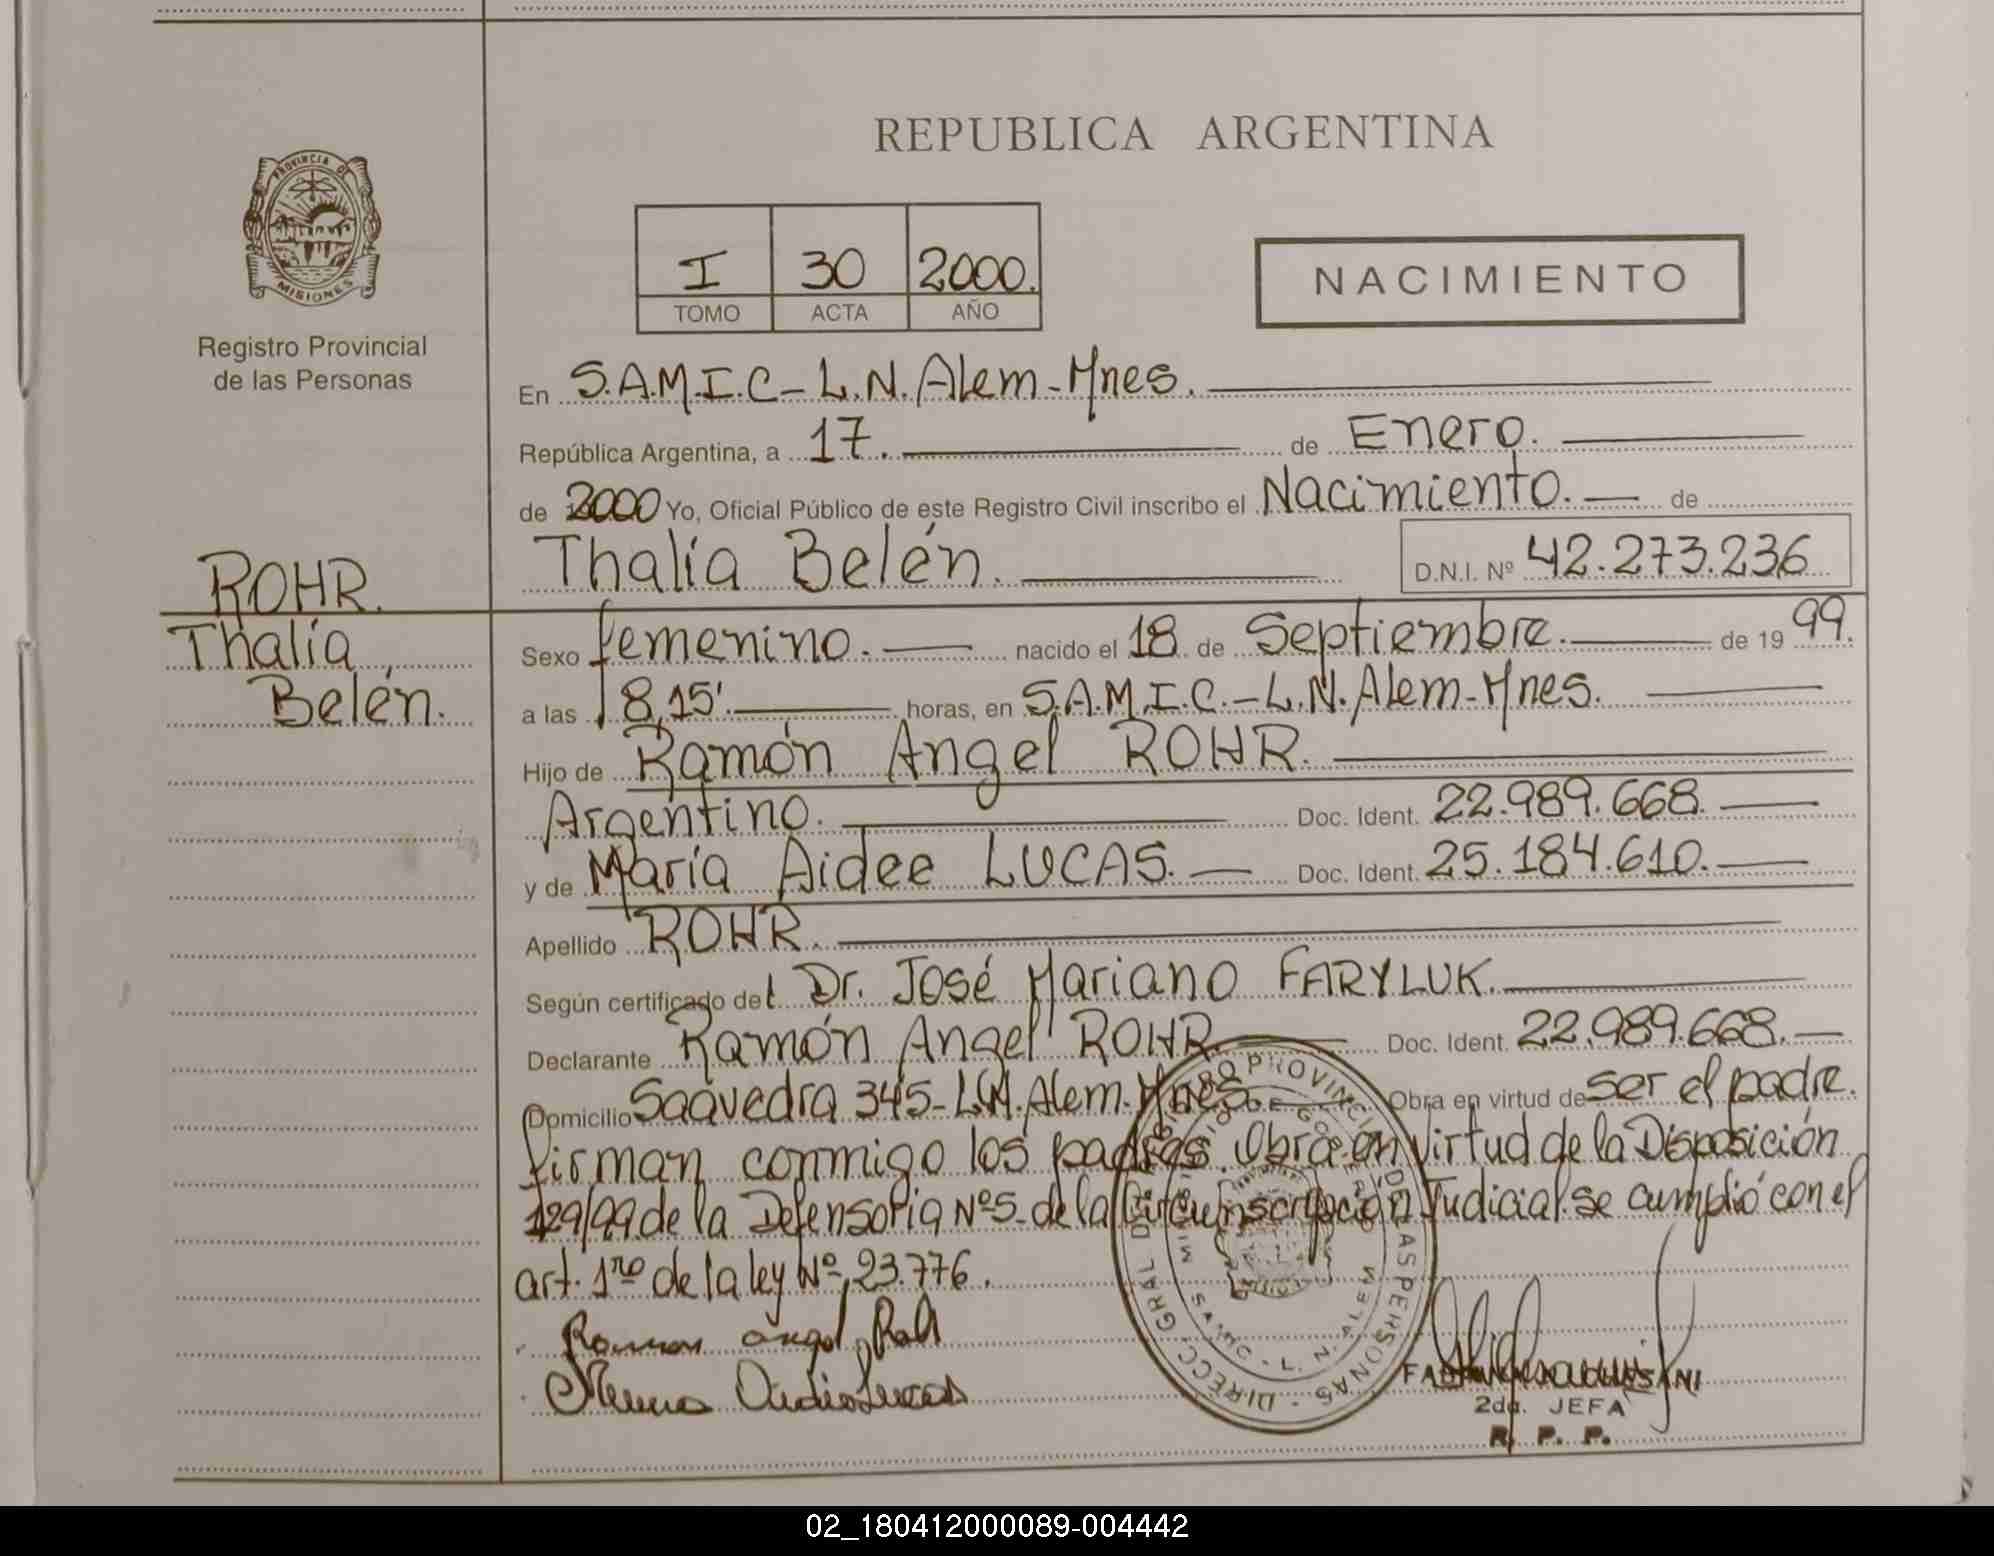 REPUBLICA ARGENTINA
PROVINCIA DE
MISIONES
Registro Provincial
de las Personas
I 30 2000.
TOMO ACTA AÑO
NACIMIENTO
En S.A.M.I.C-L.N.Alem-Mnes.
República Argentina, a 17. de Enero.
de 2000 Yo, Oficial Público de este Registro Civil inscribo el Nacimiento. de
Thalía Belén. D.N.I. Nº 42.273.236
ROHR.
Thalía
Belén.
Sexo femenino. nacido el 18 de Septiembre. de 19 99.
a las 18,15' horas, en S.A.M.I.C.-L.N.Alem-Mnes.
Hijo de Ramón Angel ROHR.
Argentino. Doc. Ident. 22.989.668.
y de María Aidee LUCAS. Doc. Ident. 25.184.610.
Apellido ROHR.
Según certificado del Dr. José Mariano FARYLUK.
Declarante Ramón Angel ROHR. Doc. Ident. 22.989.668.
Domicilio Saavedra 345-L.N.Alem-Mnes. Obra en virtud de ser el padre.
firman conmigo los padres. Obra en virtud de la Disposición
129/99 de la Defensoria Nº5-de la Circunscripción Judicial.se cumplió con el
art. 1ro de la ley Nº 23.776.
Ramon angel
Lucas
DIRECC. GRAL. DE REGISTRO PROVINCIAL DE LAS PERSONAS
SAMIC - L. N. ALEM
2da. JEFA
R. P. P.
02_180412000089-004442